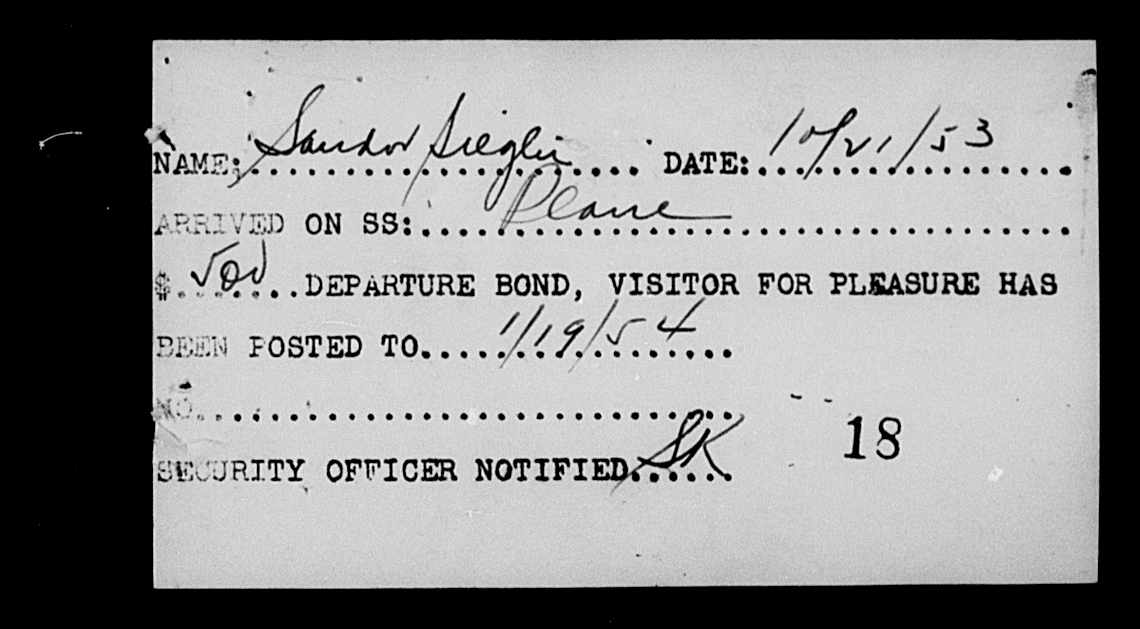 NAME: Sandor Siegler DATE: 10/21/53
ARRIVED ON SS: Plane
$ 500 DEPARTURE BOND, VISITOR FOR PLEASURE HAS
BEEN POSTED TO 1/19/54
NO.
SECURITY OFFICER NOTIFIED SK
18